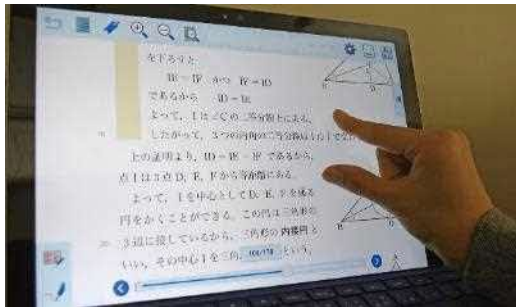 を下ろすと
IE＝IF かつ IF＝ID
であるから ID＝IE
よって，Iは∠Cの二等分線上にある。
したがって，3つの内角の二等分線は1点Iで
上の証明より，ID＝IE＝IF であるから，
点Iは3点D，E，Fから等距離にある。
よって，Iを中心としてD，E，Fを通る
円をかくことができる。この円は三角形の
3辺に接しているから，三角形の内接円と
いい，その中心Iを三角
という。